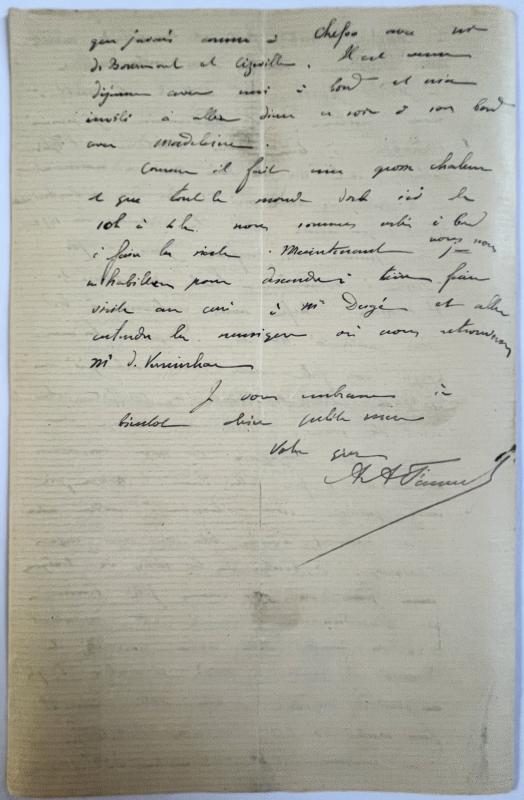 que j'avais connu à Chefoo avec Mr
de Bourmont et . Il est venu
déjeuner avec moi à bord et m'a
invité à aller dîner ce soir à son bord
avec Madeleine.
Comme il fait une grosse chaleur
et que tout le monde dort ici de
10h à 4h nous sommes restés à bord
à faire la sieste. Maintenant nous nous
habiller pour descendre à terre faire
visite au curé à Mr et aller
entendre la musique où nous retrouverons
Mr d.
Je vous embrasse à
bientôt chère petite mère
Votre